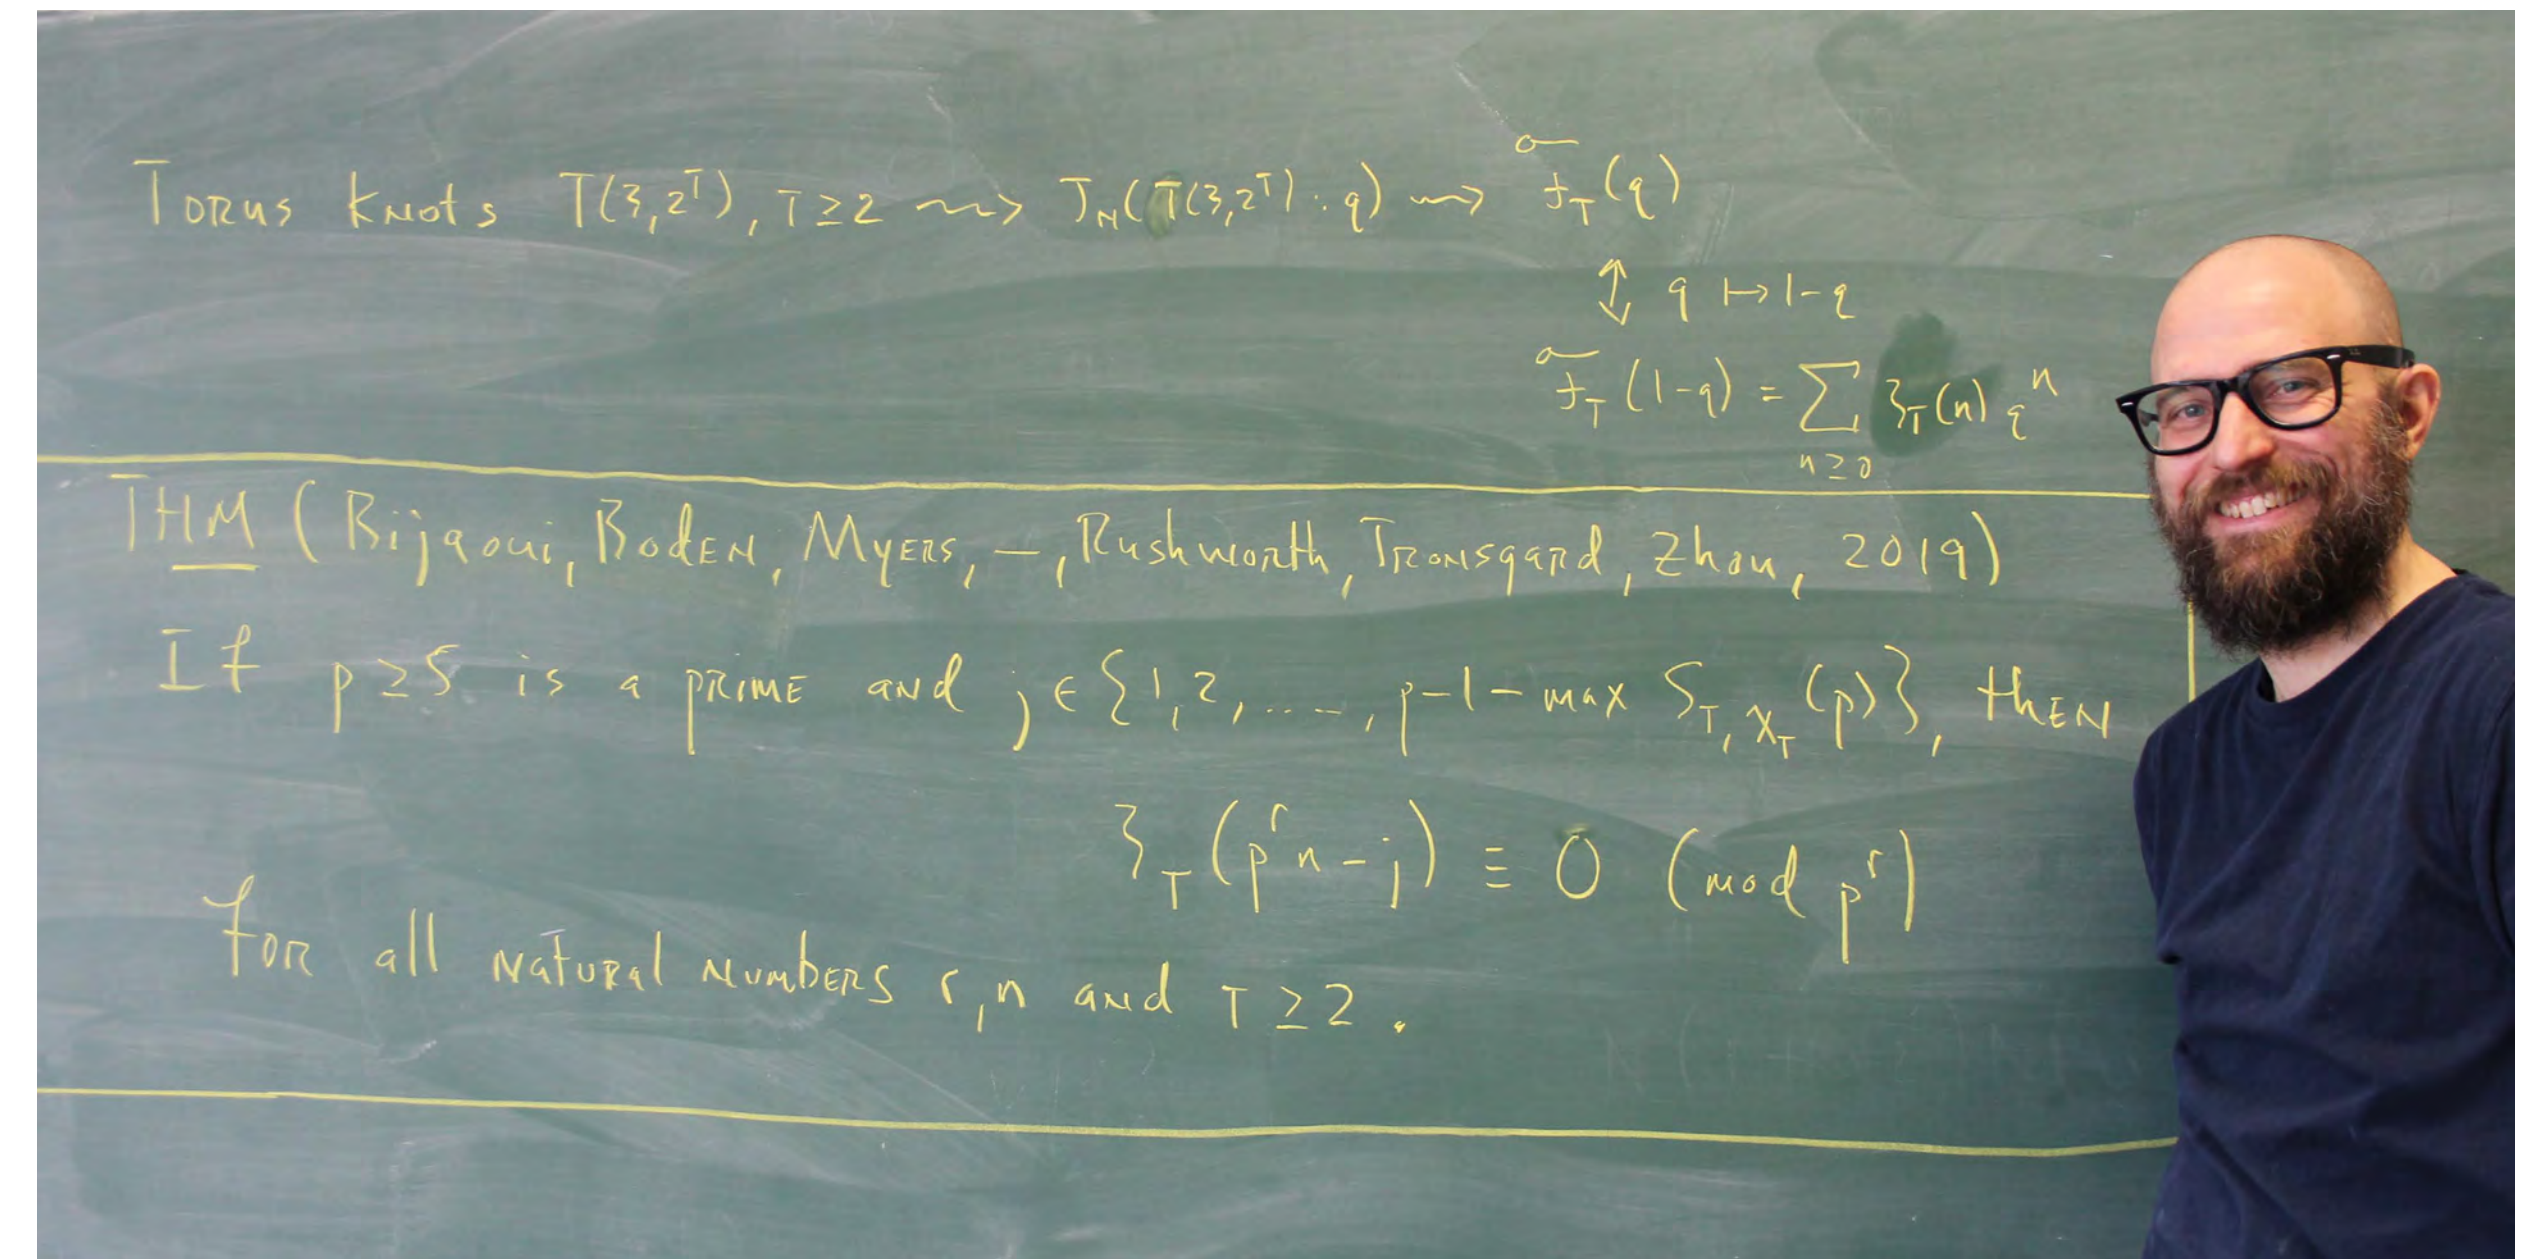 Torus knots T(3,2^T), T ≥ 2 ⇝ J_N(T(3,2^T); q) ⇝ ℱ_T(q)
↕ q ↦ 1-q
ℱ_T(1-q) = ∑_{n≥0} ξ_T(n) q^n
THM (Bijaoui, Boden, Myers, —, Rushworth, Tronsgard, Zhou, 2019)
If p ≥ 5 is a prime and j ∈ {1, 2, ..., p-1-max S_{T,χ_T}(p)}, then
ξ_T(p^r n - j) ≡ 0 (mod p^r)
for all natural numbers r, n and T ≥ 2.